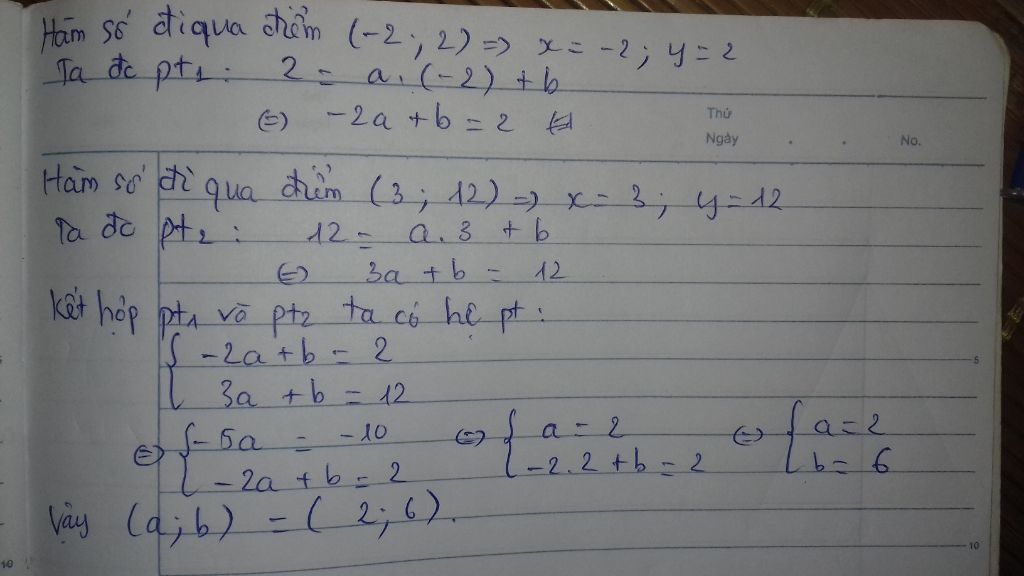 Hàm số đi qua điểm (-2; 2) => x = -2; y = 2
Ta đc pt1: 2 = a.(-2) + b
<=> -2a + b = 2
Thứ
Ngày . . No.
Hàm số đi qua điểm (3; 12) => x = 3; y = 12
Ta đc pt2: 12 = a.3 + b
<=> 3a + b = 12
Kết hợp pt1 và pt2 ta có hệ pt:
{ -2a + b = 2
3a + b = 12
5
<=> { -5a = -10 <=> { a = 2 <=> { a = 2
-2a + b = 2 -2.2 + b = 2 b = 6
Vậy (a; b) = ( 2; 6).
10
10